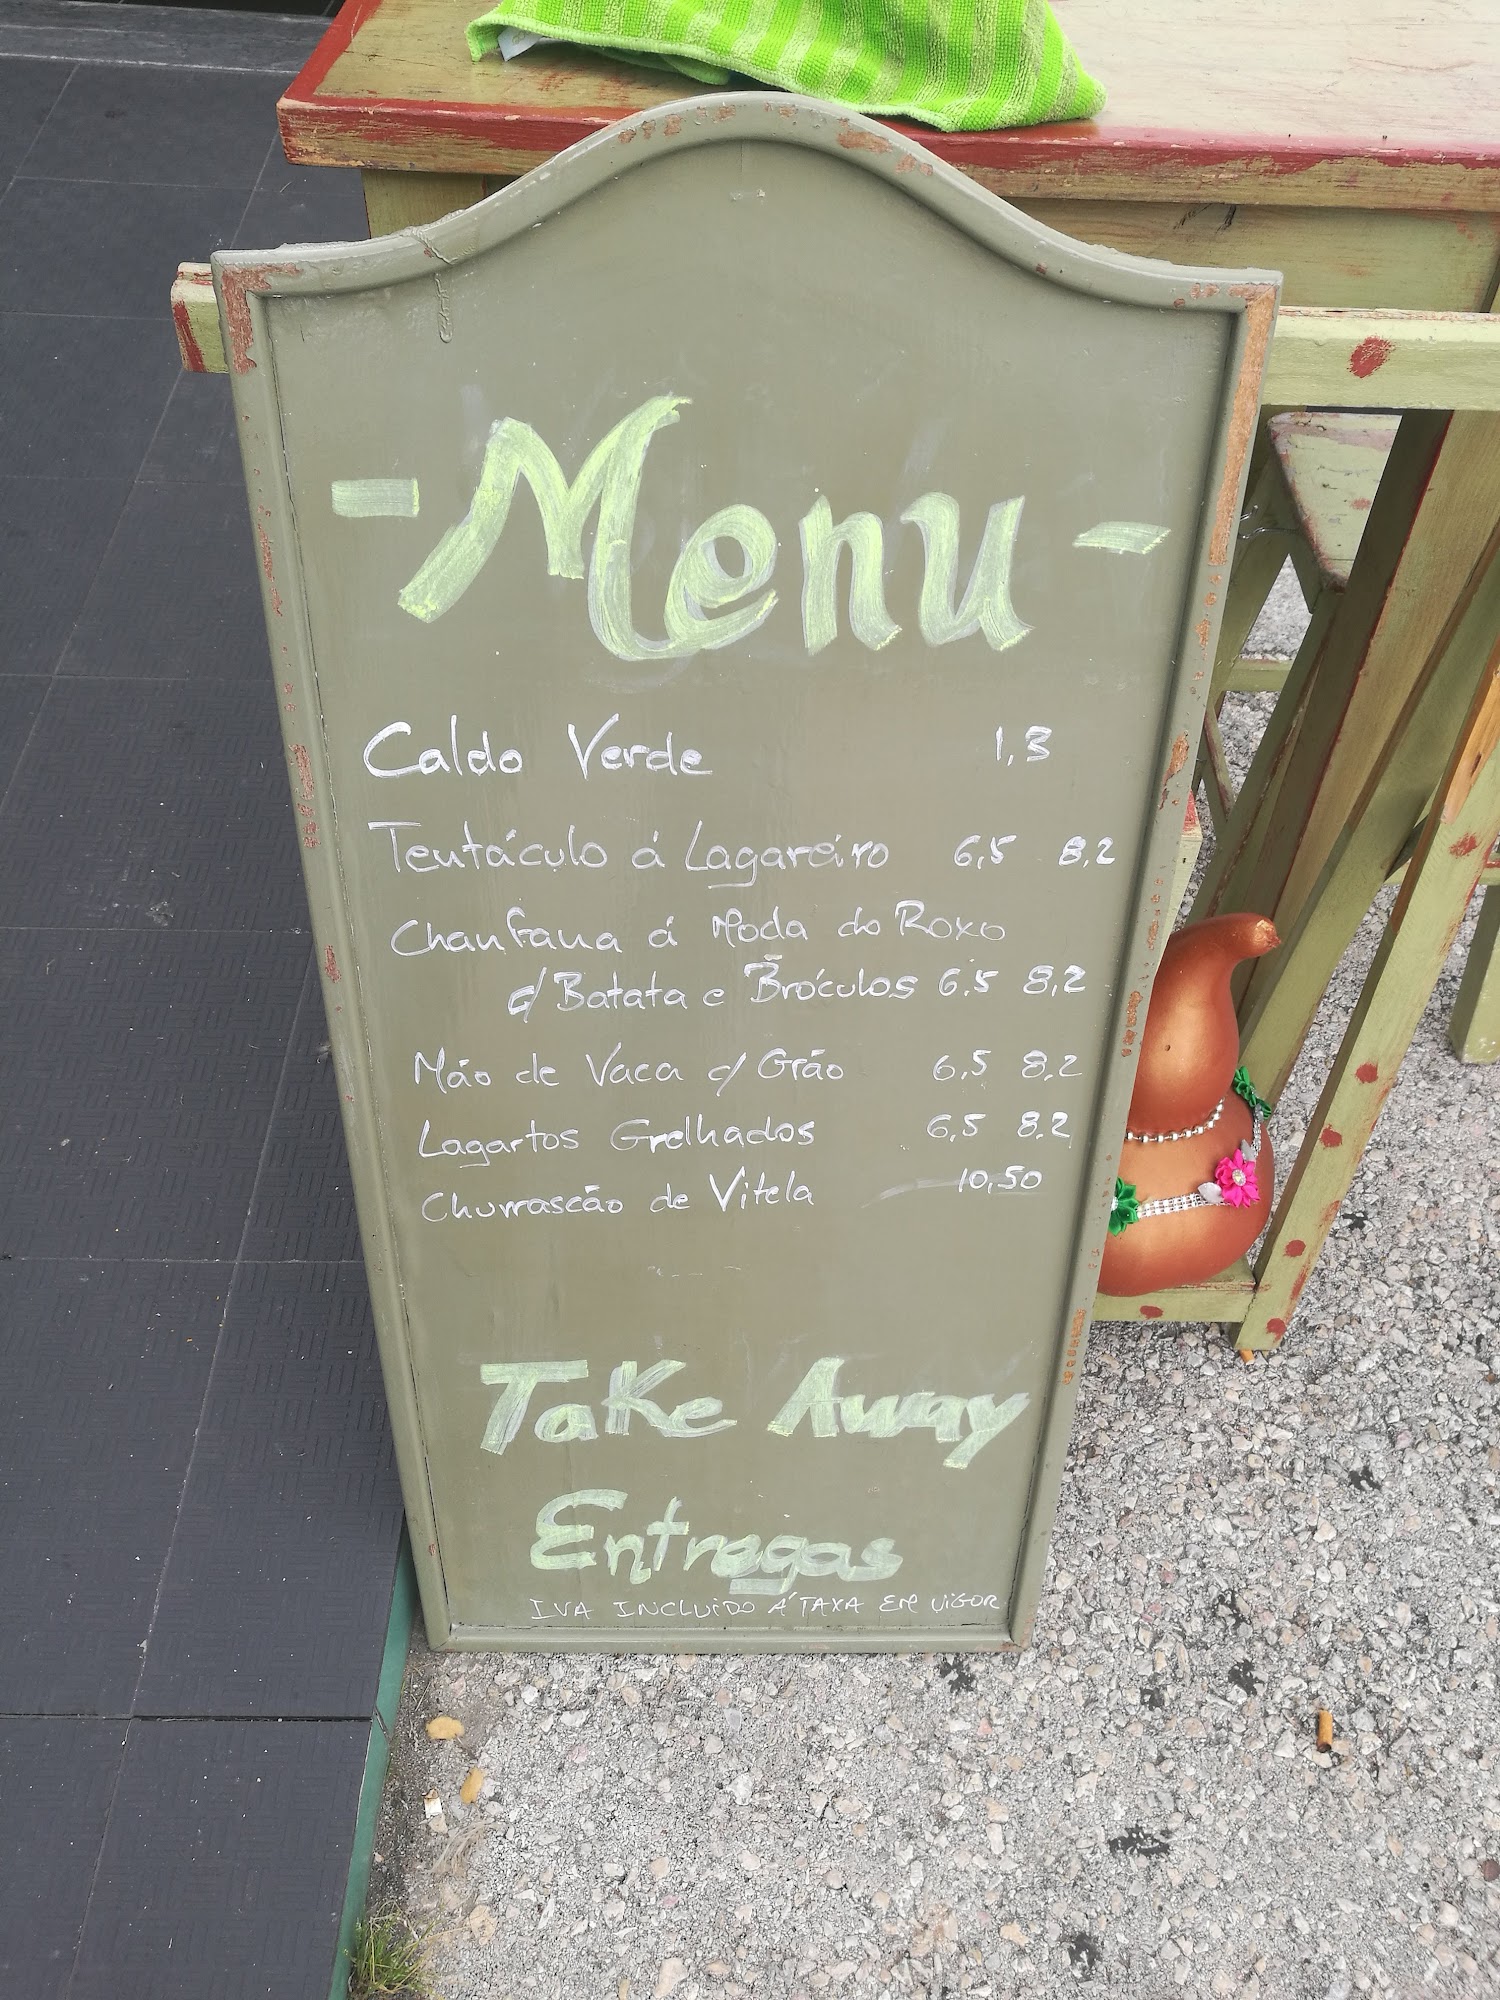 - Menu -
Caldo Verde 1,3
Tentáculo á Lagareiro 6,5 8,2
Chanfana á Moda do Roxo
c/ Batata e Bróculos 6,5 8,2
Mão de Vaca c/ Grão 6,5 8,2
Lagartos Grelhados 6,5 8,2
Churrascão de Vitela 10,50
Take Away
Entregas
IVA INCLUIDO Á TAXA EM VIGOR